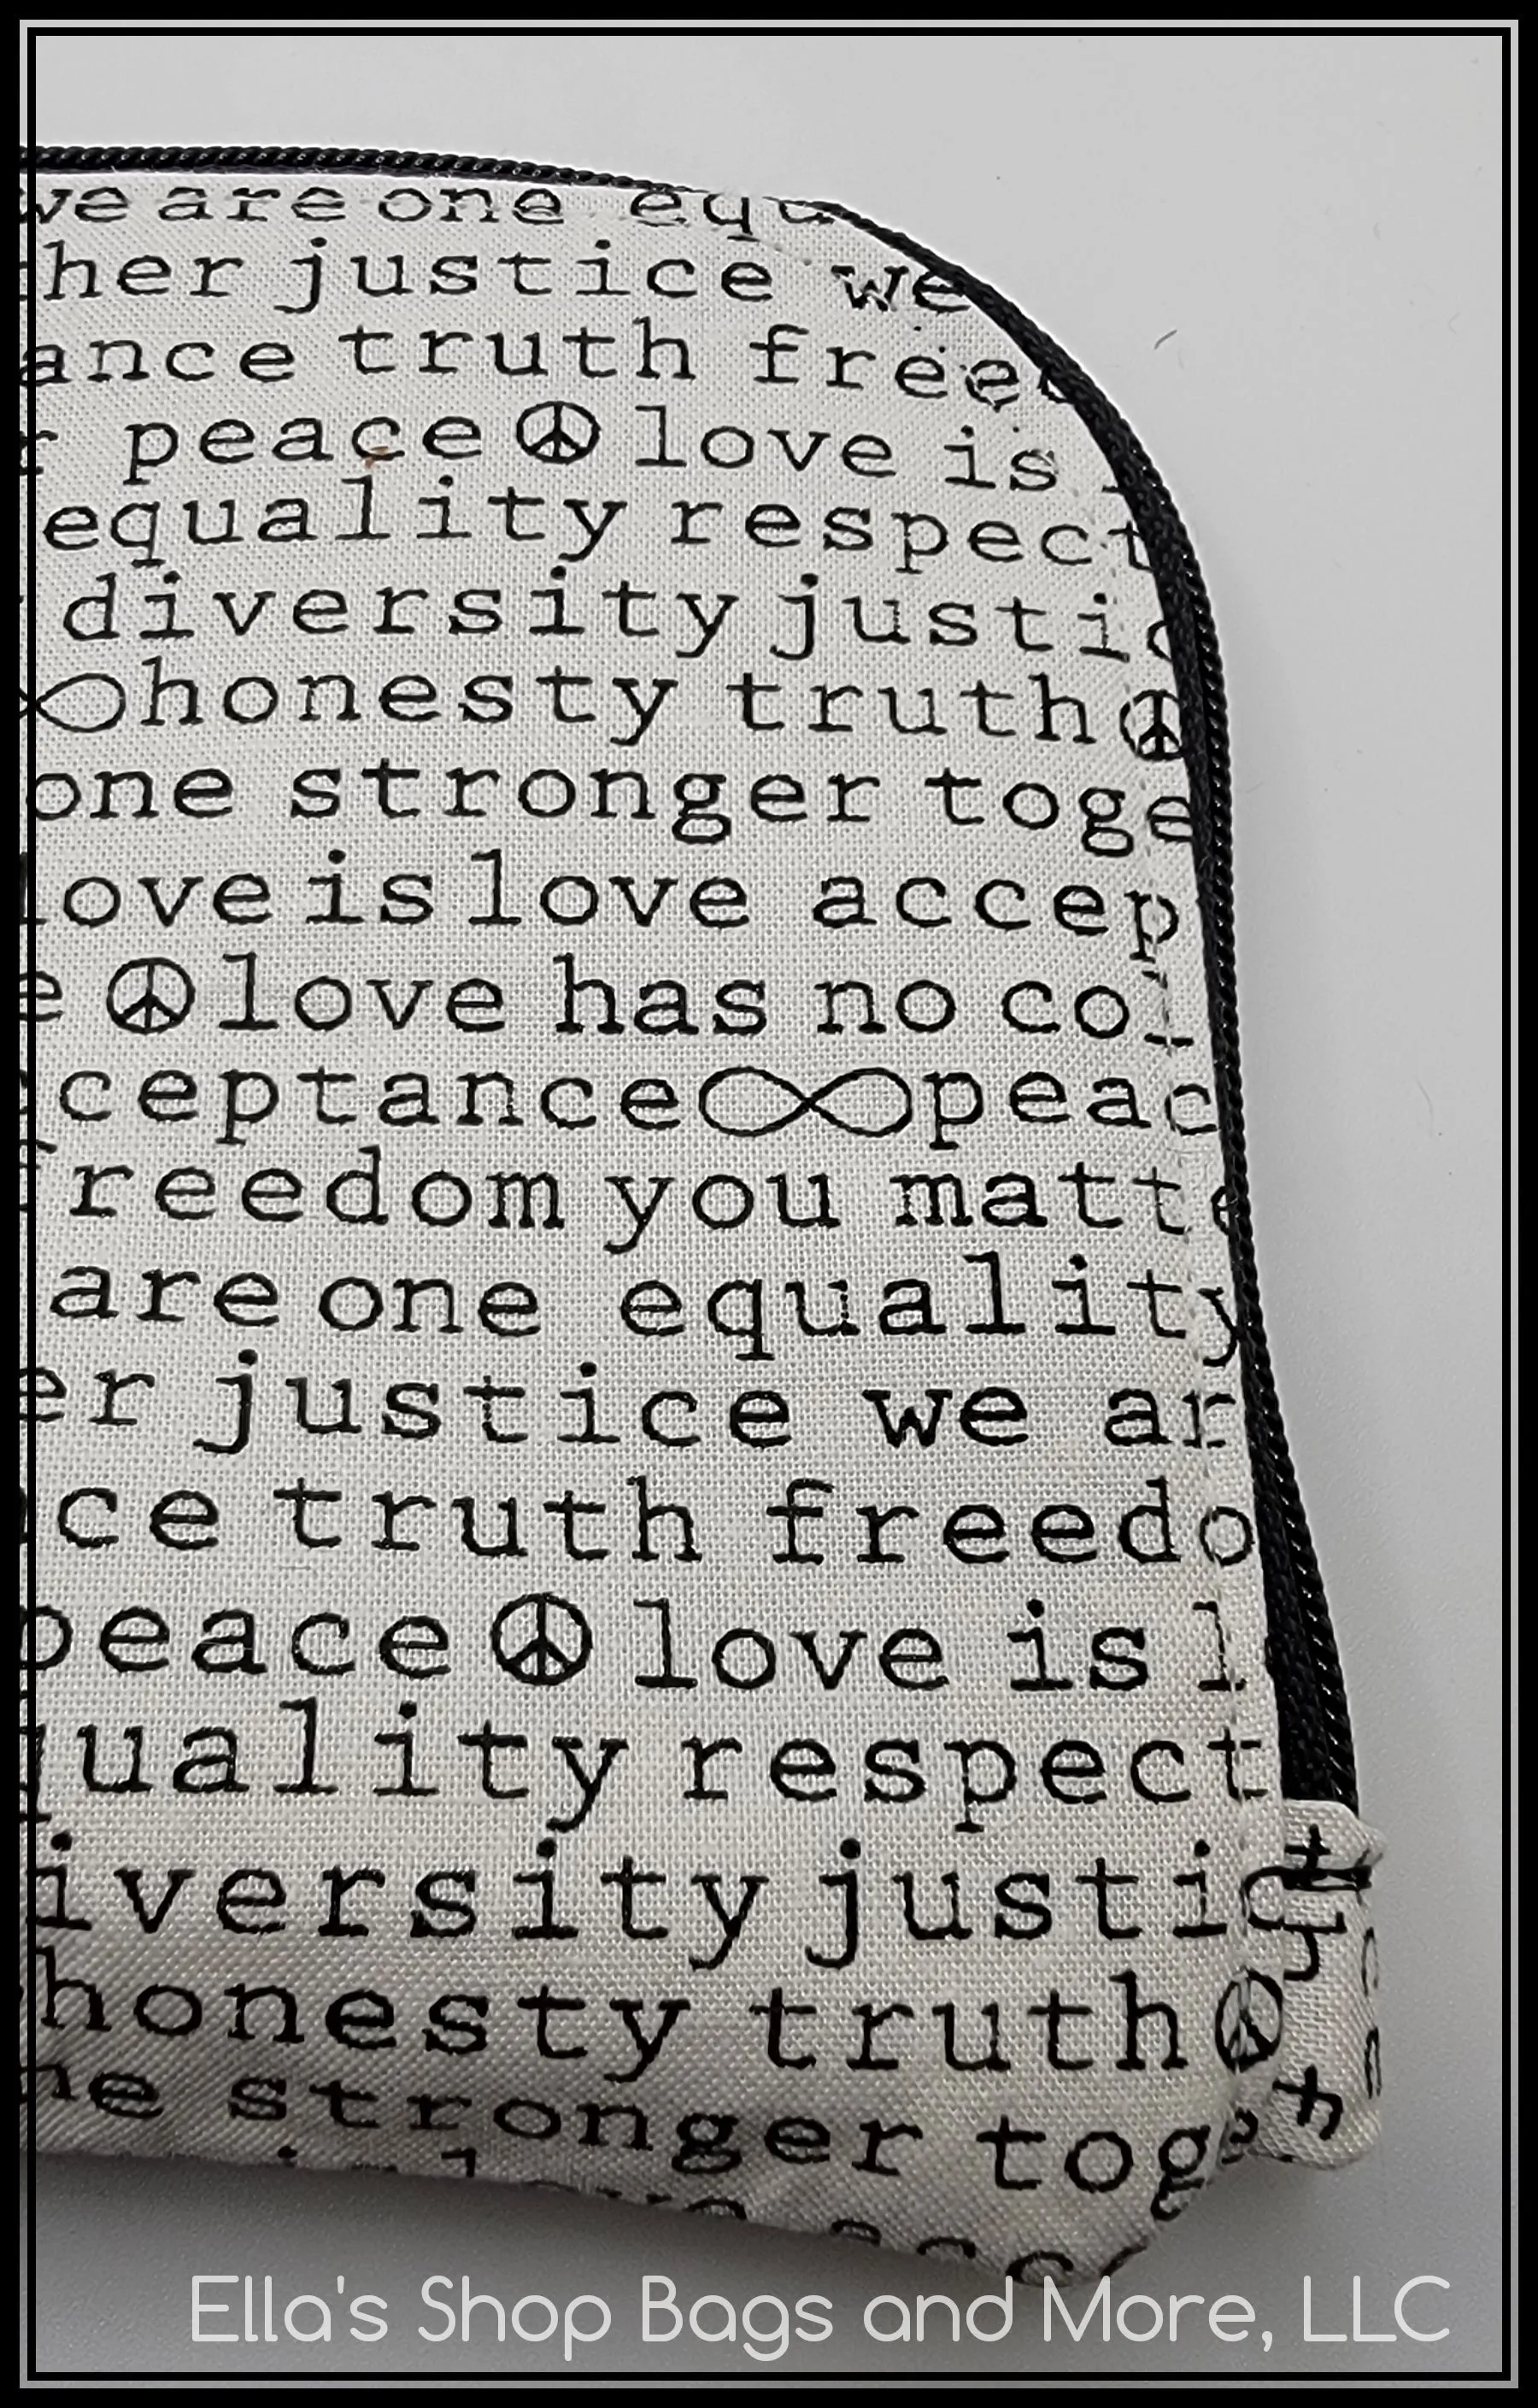 we are one equ
her justice we
ance truth free
r peace ☮ love is
equality respect
diversity justic
∞ honesty truth ☮
one stronger toge
love is love accep
e ☮ love has no col
cceptance ∞ peac
freedom you matte
are one equality
er justice we ar
nce truth freedo
peace ☮ love is l
quality respect
iversity justic
honesty truth ☮
ne stronger toge
Ella's Shop Bags and More, LLC